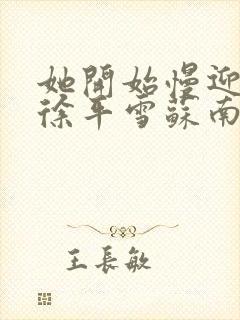 她開始慢迎
徐平雪蘇南
王長敏